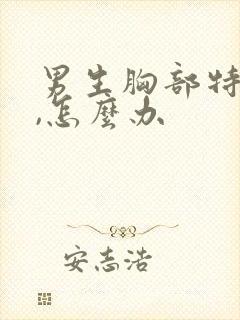 男生胸部特
,怎麼办
安志浩